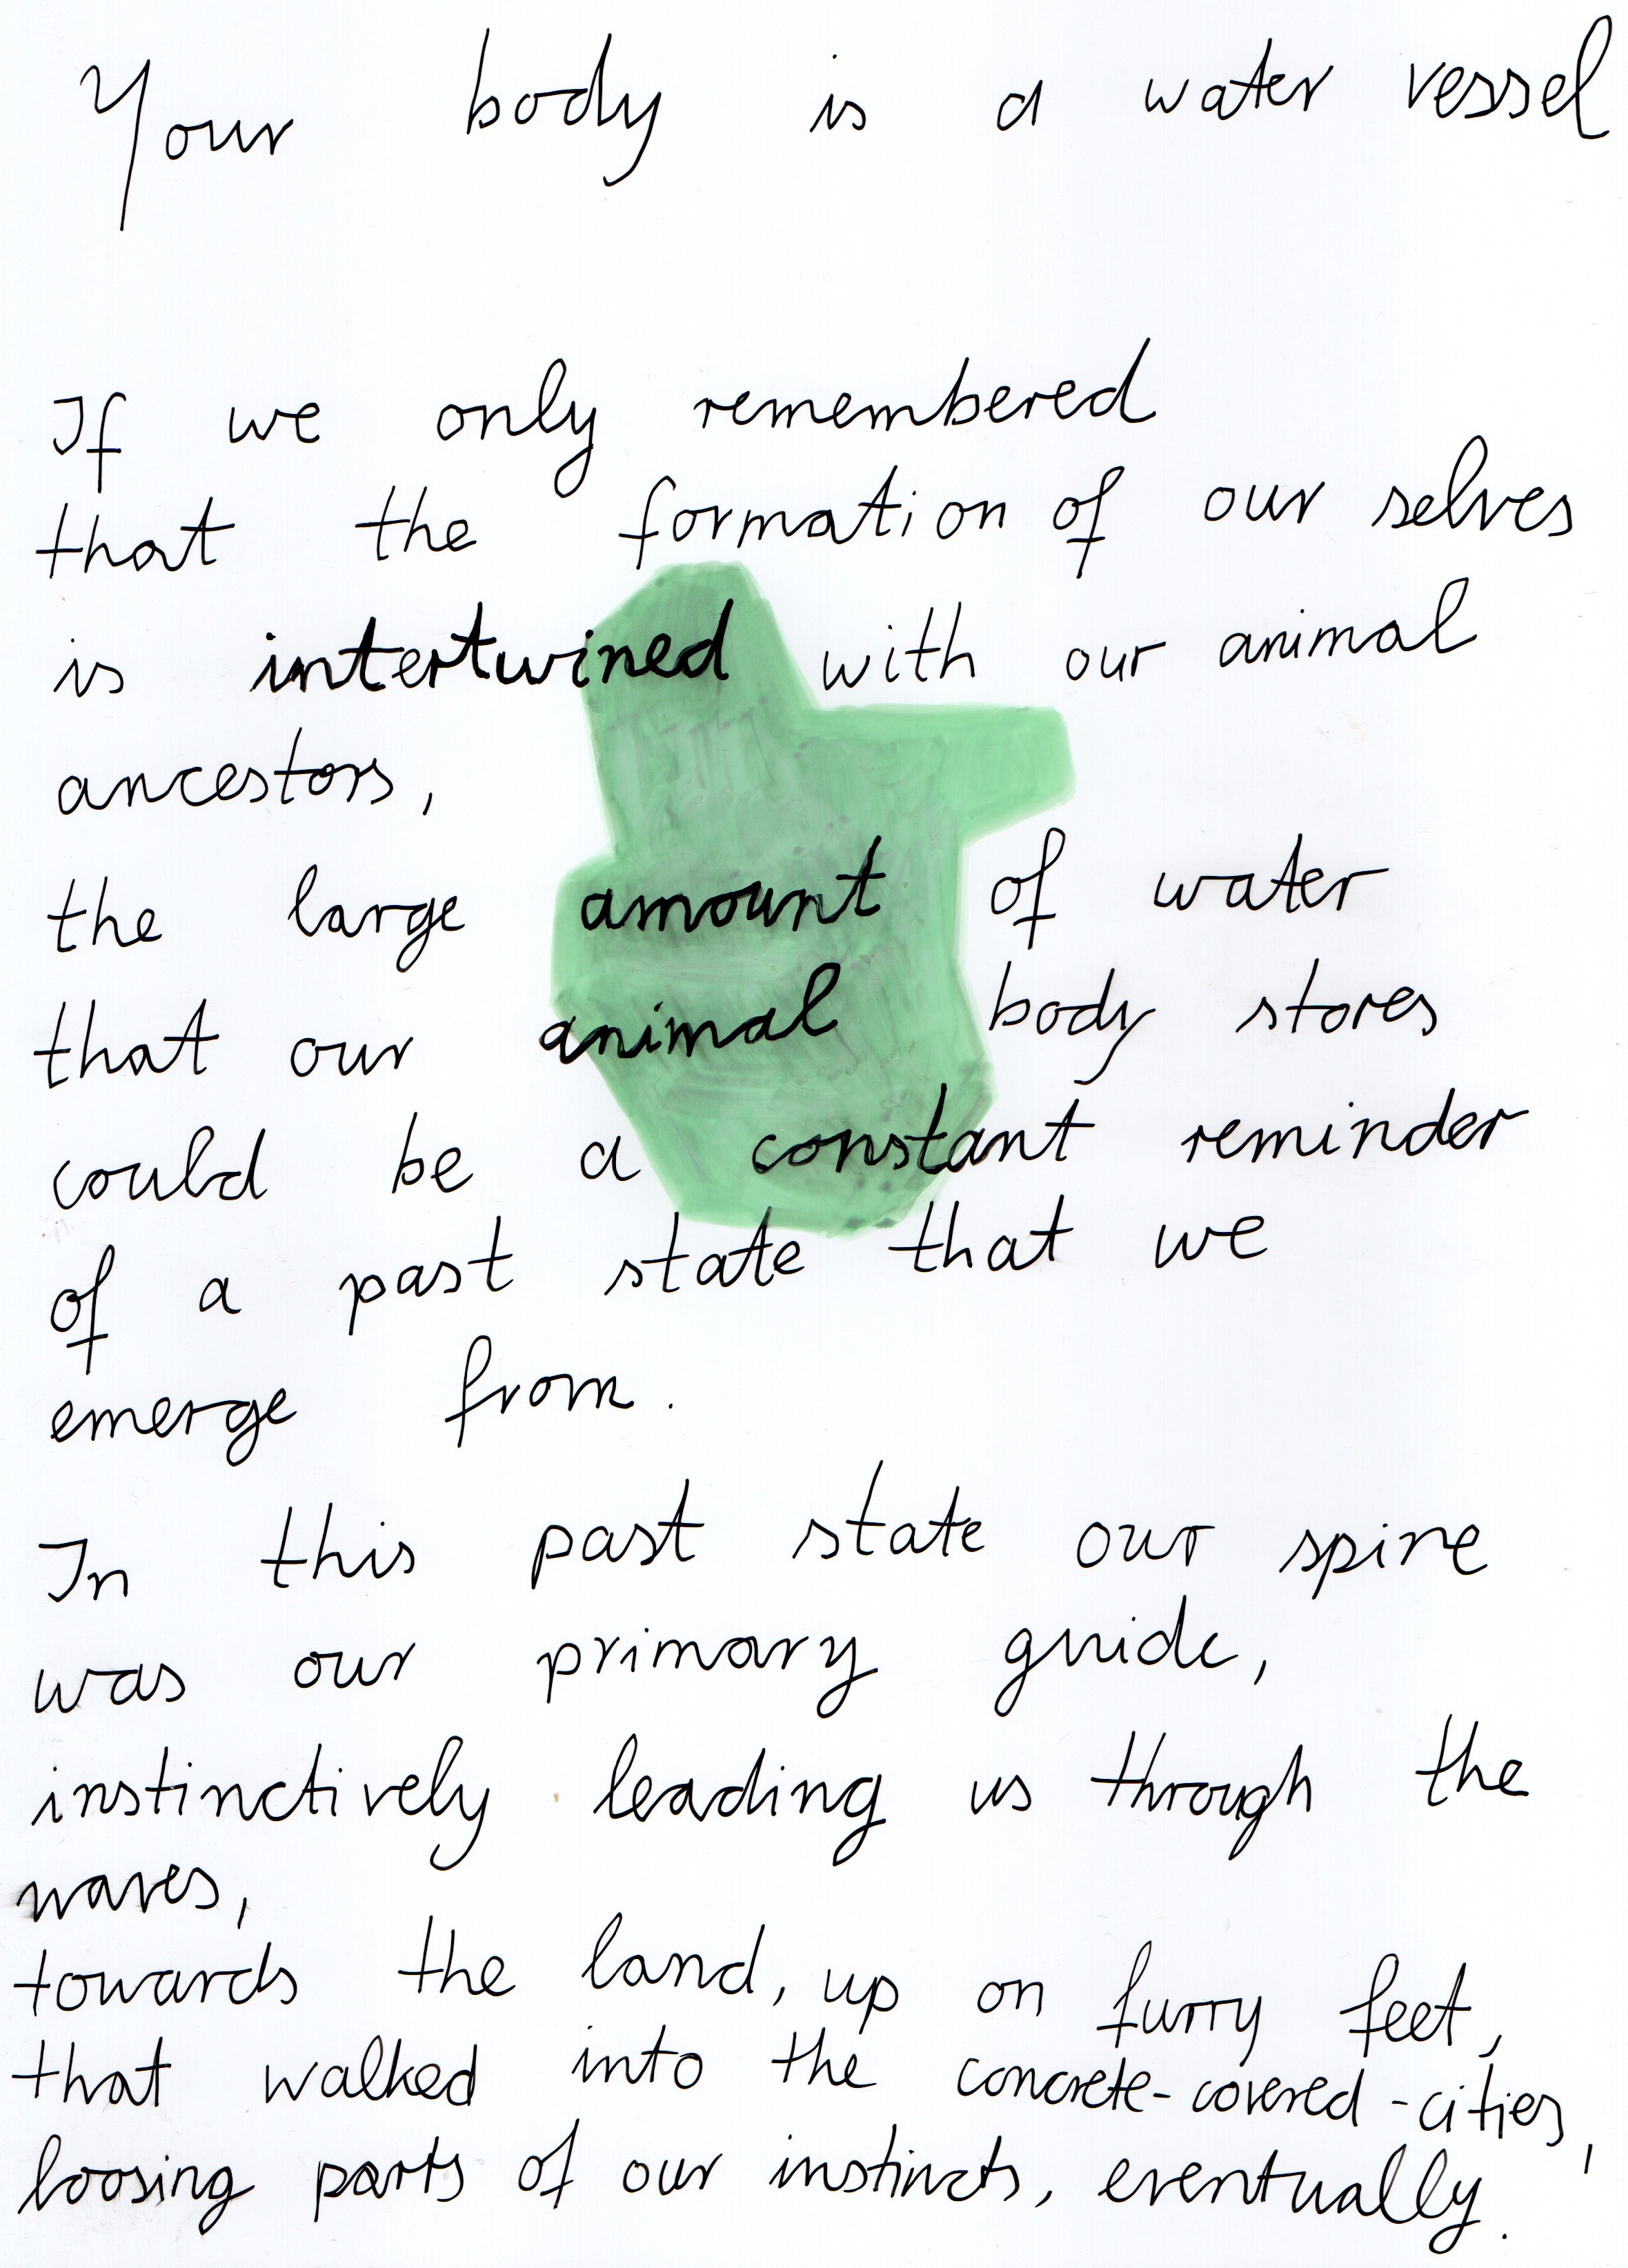 Your body is a water vessel
If we only remembered
that the formation of our selves
is intertwined with our animal
ancestors,
the large amount of water
that our animal body stores
could be a constant reminder
of a past state that we
emerge from.
In this past state our spine
was our primary guide,
instinctively leading us through the
waves,
towards the land, up on furry feet,
that walked into the concrete-covered-cities,
loosing parts of our instincts, eventually.